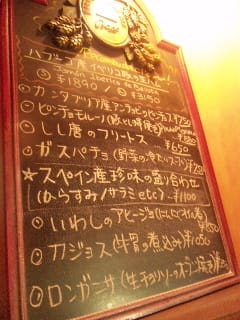 ハブーゴ産イベリコ豚の生ハム
Jamón Iberico de Bellota
¥1890 / ¥3150
◎カンタブリア産アンチョビ
◎ピンチョモルーノ
◎しし唐のフリートス
¥650
◎ガスパチョ(野菜の冷たいスープ)
★スペイン産珍味の盛り合わせ
(からすみ/サラミetc) ¥1100
◎いわしのアヒージョ(にんにくオイル煮)
◎カジョス(牛胃の煮込み)
◎ロンガニーサ(生チョリソーのオーブン焼き)